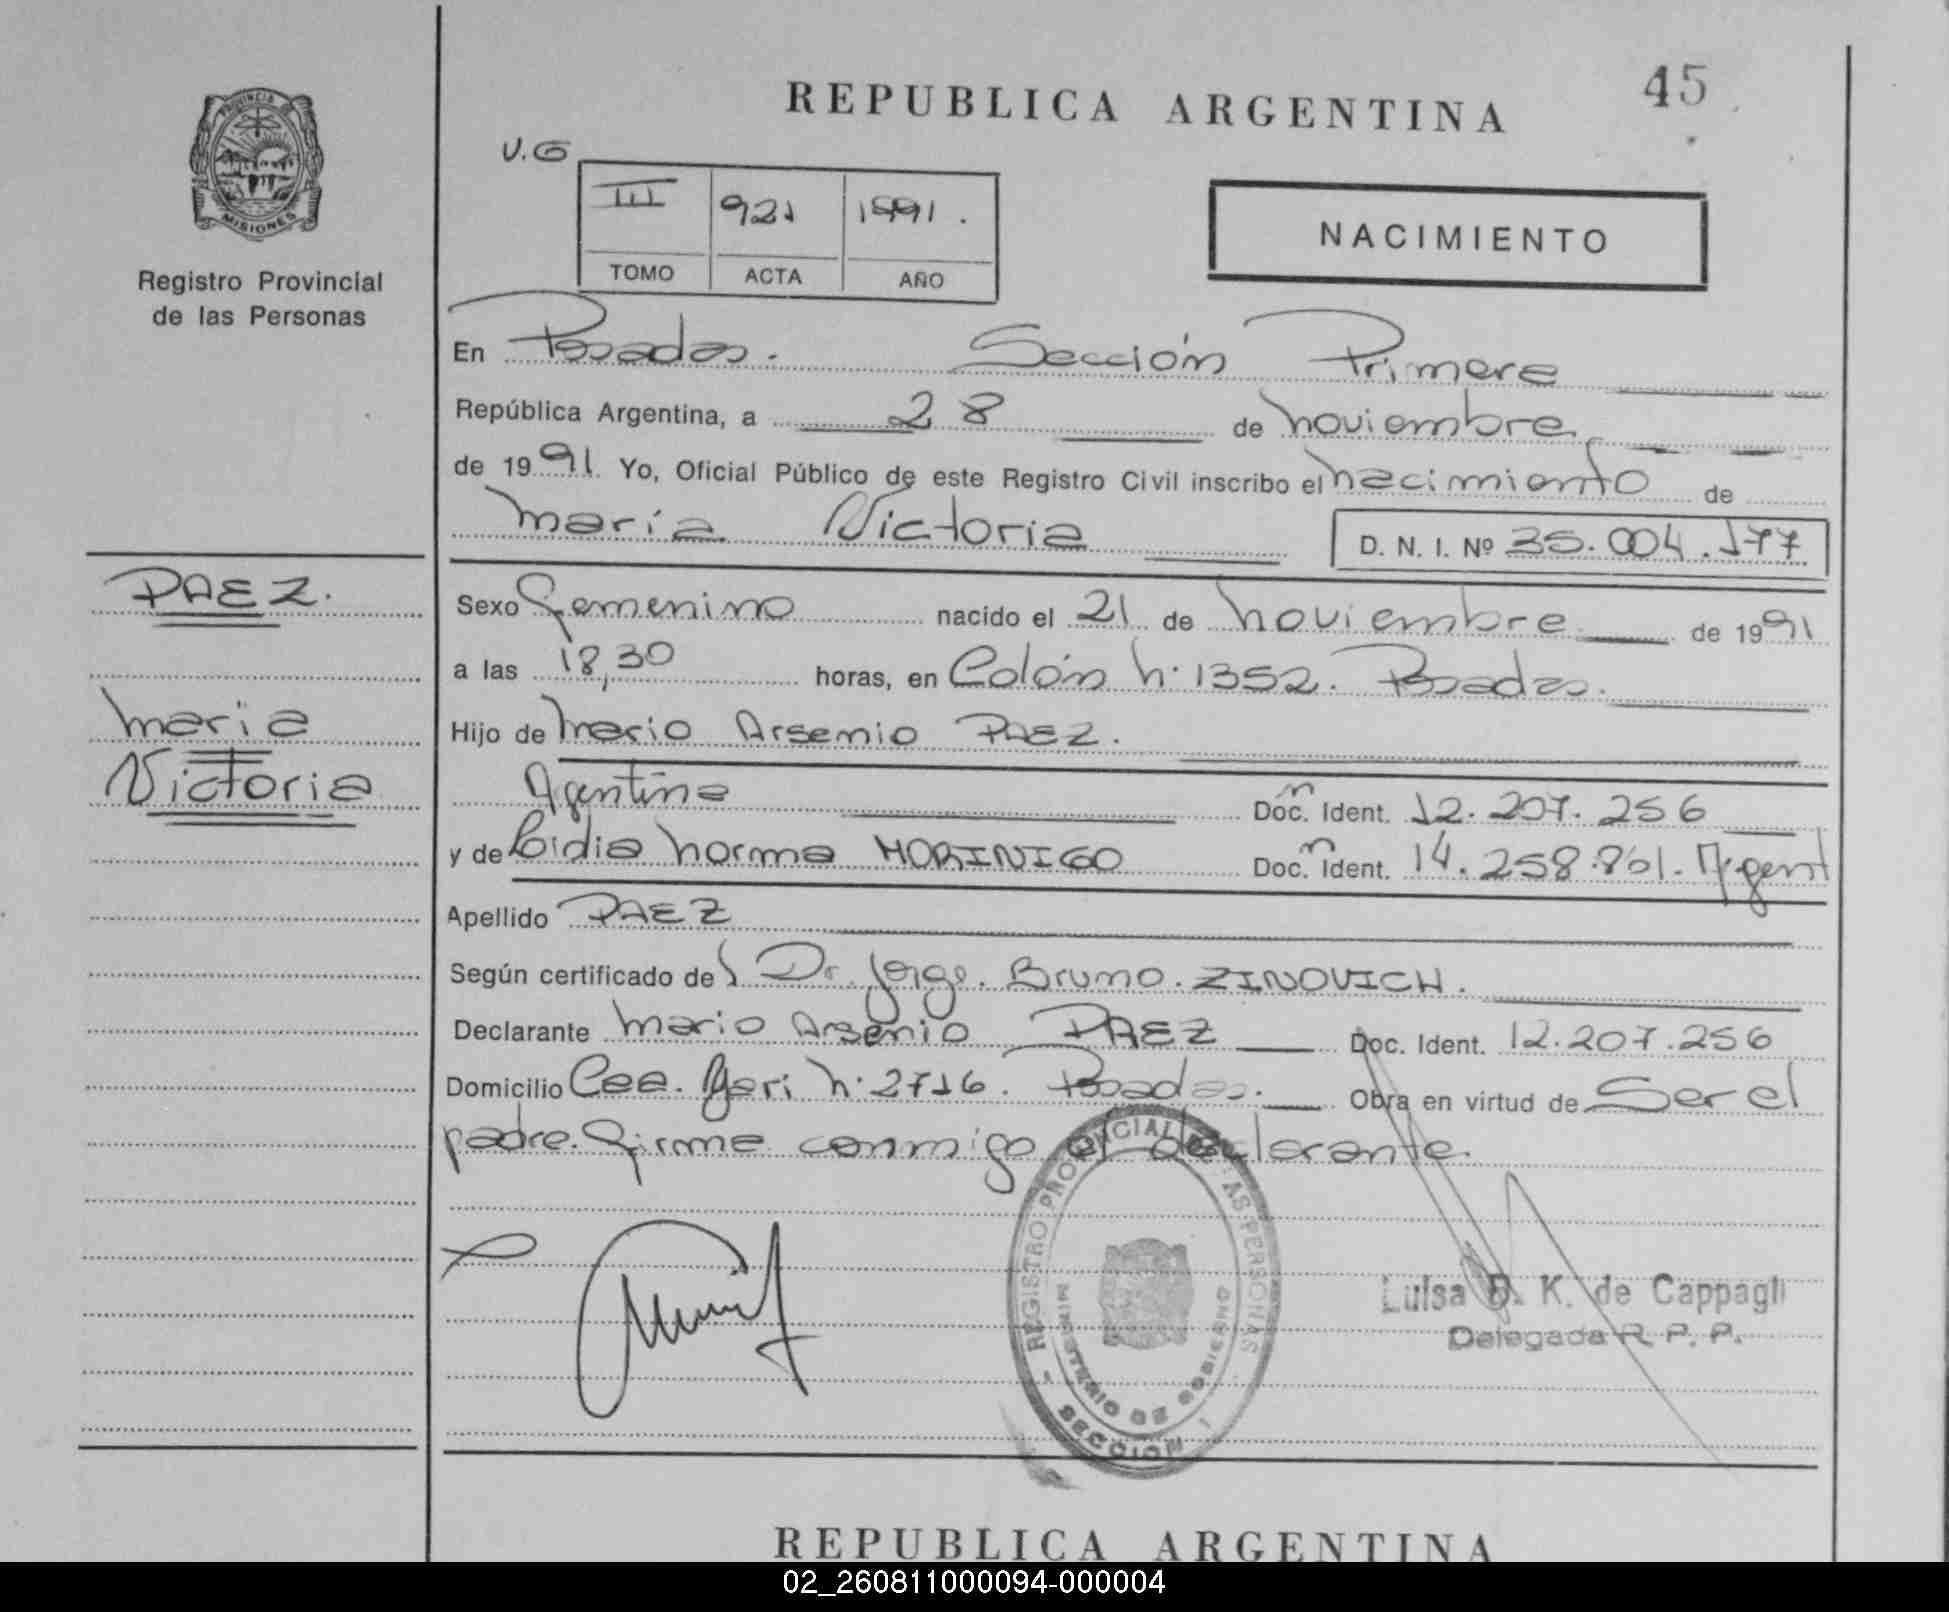 REPUBLICA ARGENTINA
45
PROVINCIA DE
MISIONES
Registro Provincial
de las Personas
U.G
III 921 1991.
TOMO ACTA AÑO
NACIMIENTO
En Posadas. Sección Primera
República Argentina, a 28 de noviembre
de 1991 Yo, Oficial Público de este Registro Civil inscribo el nacimiento de
María Victoria D. N. I. Nº 35.004.177
PAEZ.
María
Victoria
Sexo Femenino nacido el 21 de noviembre de 1991
a las 18,30 horas, en Colón n· 1352. Posadas.
Hijo de Mario Arsenio PAEZ.
Agentina Doc. Ident. 12.207.256
y de Lidia Norma MORINIGO Doc. Ident. 14.258.801. Argent
Apellido PAEZ
Según certificado del Dr. Jorge. Bruno. ZINOVICH.
Declarante Mario Arsenio PAEZ Doc. Ident. 12.207.256
Domicilio n· 2716. Posadas. Obra en virtud de Ser el
padre. Firma conmigo el declarante.
REGISTRO PROVINCIAL DE LAS PERSONAS
MINISTERIO DE GOBIERNO
SECCION 1
Luisa B. K. de Cappagli
Delegada R. P. P.
REPUBLICA ARGENTINA
02_260811000094-000004